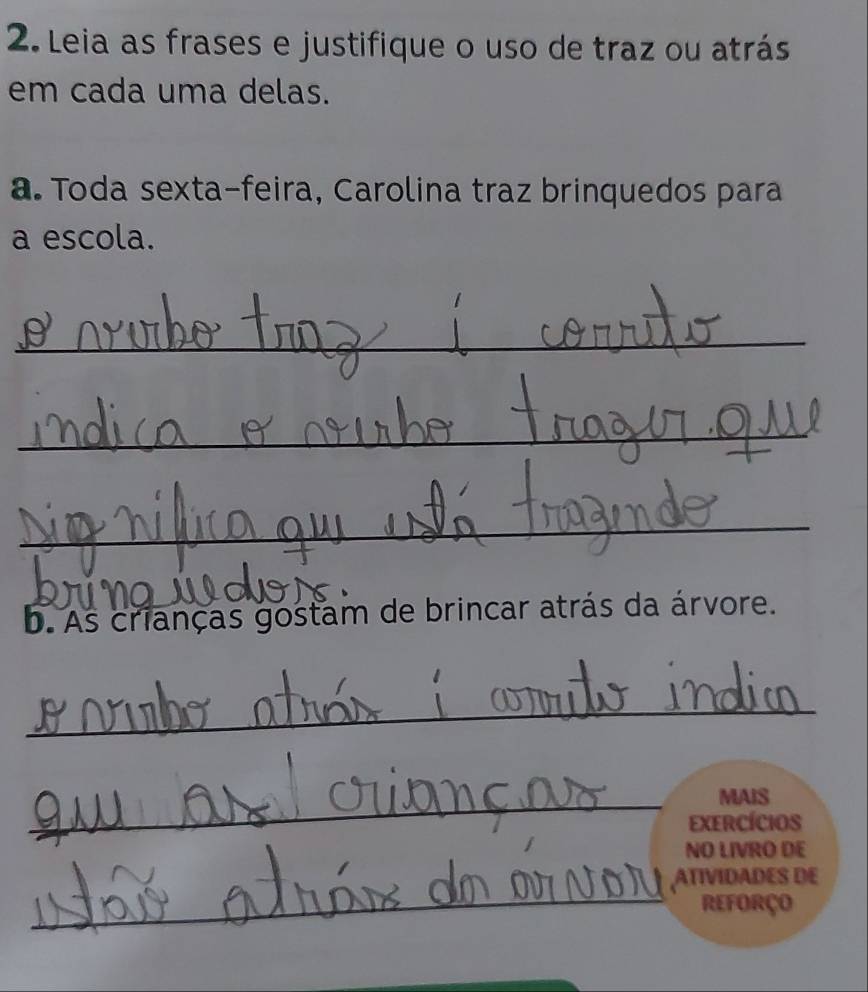 2. Leia as frases e justifique o uso de traz ou atrás
em cada uma delas.
a. Toda sexta-feira, Carolina traz brinquedos para
a escola.
o verbo traz é correto
indica o verbo trazer. que
significa que está trazendo
brinquedos.
b. As crianças gostam de brincar atrás da árvore.
o verbo atrás é correto indica
que as crianças
estão atrás da árvore
MAIS
EXERCÍCIOS
NO LIVRO DE
ATIVIDADES DE
REFORÇO